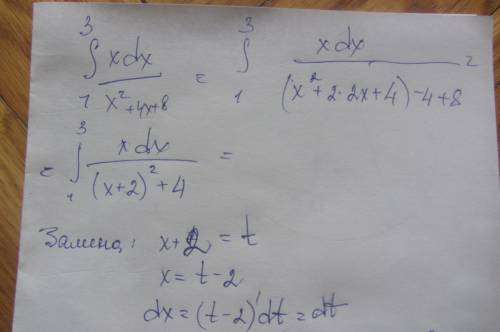 ∫₁³ xdx / (x²+4x+8) = ∫₁³ xdx / ((x²+2·2x+4)-4+8) =
= ∫₁³ xdx / ((x+2)²+4) =
Замена: x+2 = t
x = t-2
dx = (t-2)'dt = dt